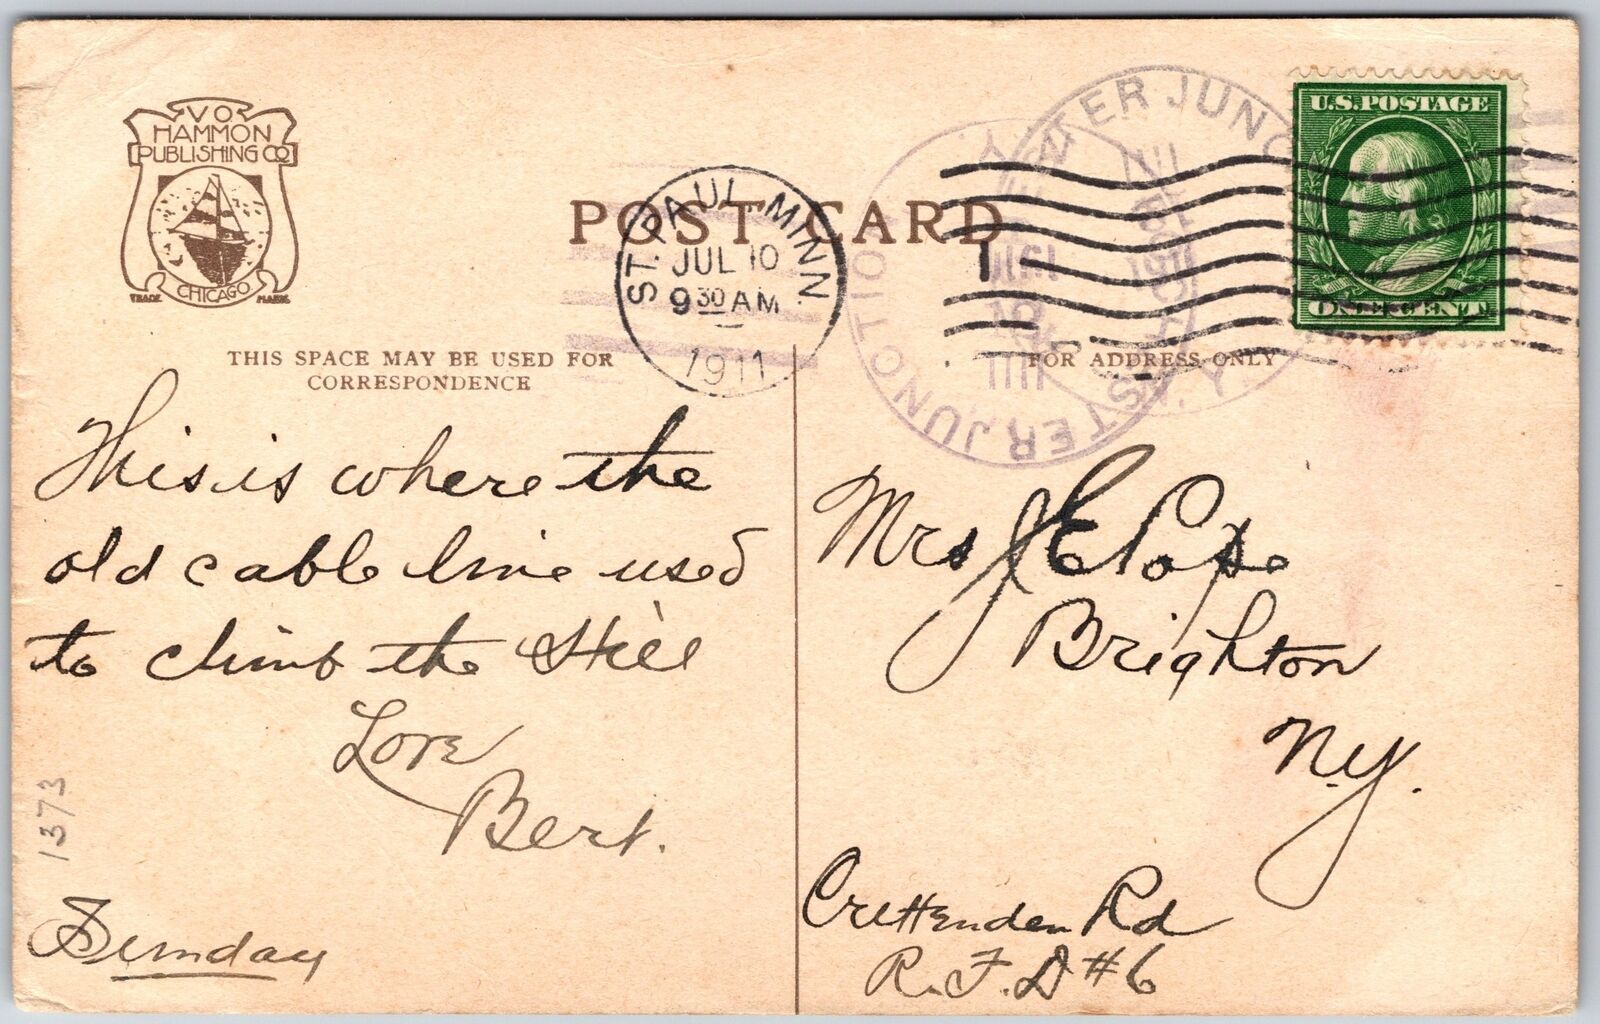 V O
HAMMON
PUBLISHING CO
CHICAGO
TRADE MARK
POST CARD
ST. PAUL, MINN.
JUL 10
9 30 AM
1911
U.S. POSTAGE
ONE CENT
THIS SPACE MAY BE USED FOR
CORRESPONDENCE
FOR ADDRESS ONLY
This is where the
old cable line used
to climb the Hill
Love
Bert.
Sunday
1373
Mrs J E Pope
Brighton
N.Y.
Crittenden Rd
R.F.D #6